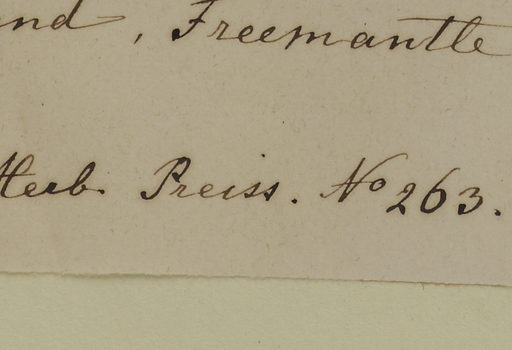 nd, Freemantle
Herb. Preiss. No 263.